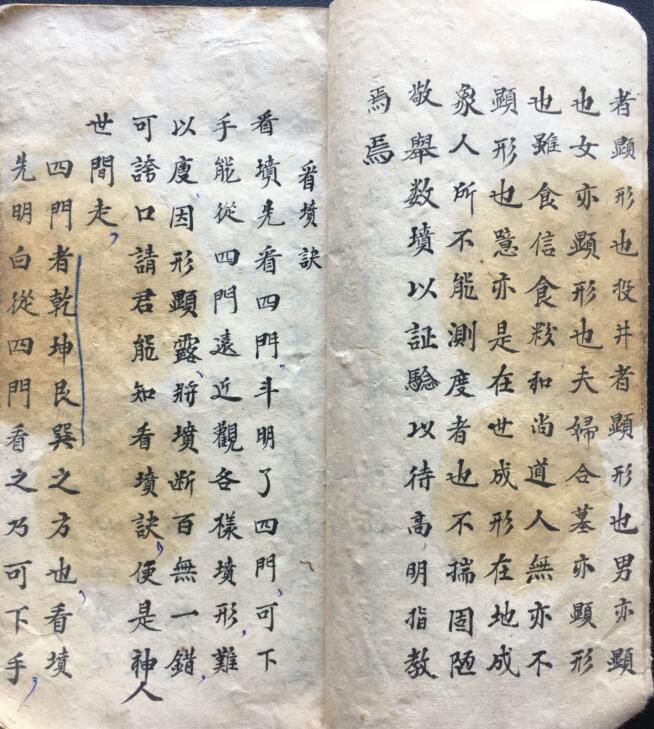 者顕形也投井者顕形也男亦顕
也女亦顕形也夫婦合墓亦顕形
也雖食信食粆和尚道人無亦不
顕形也憶亦是在世成形在地成
象人所不能測度者也不揣固陋
敬舉数墳以証驗以待高明指教
焉焉
看墳訣
看墳先看四門,斗明了四門,可下
手能従四門遠近觀各樣墳形,難
以廋,因形顕露,將墳断百無一錯,
可誇口請君能知看墳訣,便是神人
世間走,
四門者乾坤艮巽之方也,看墳
先明白従四門看之乃可下手,